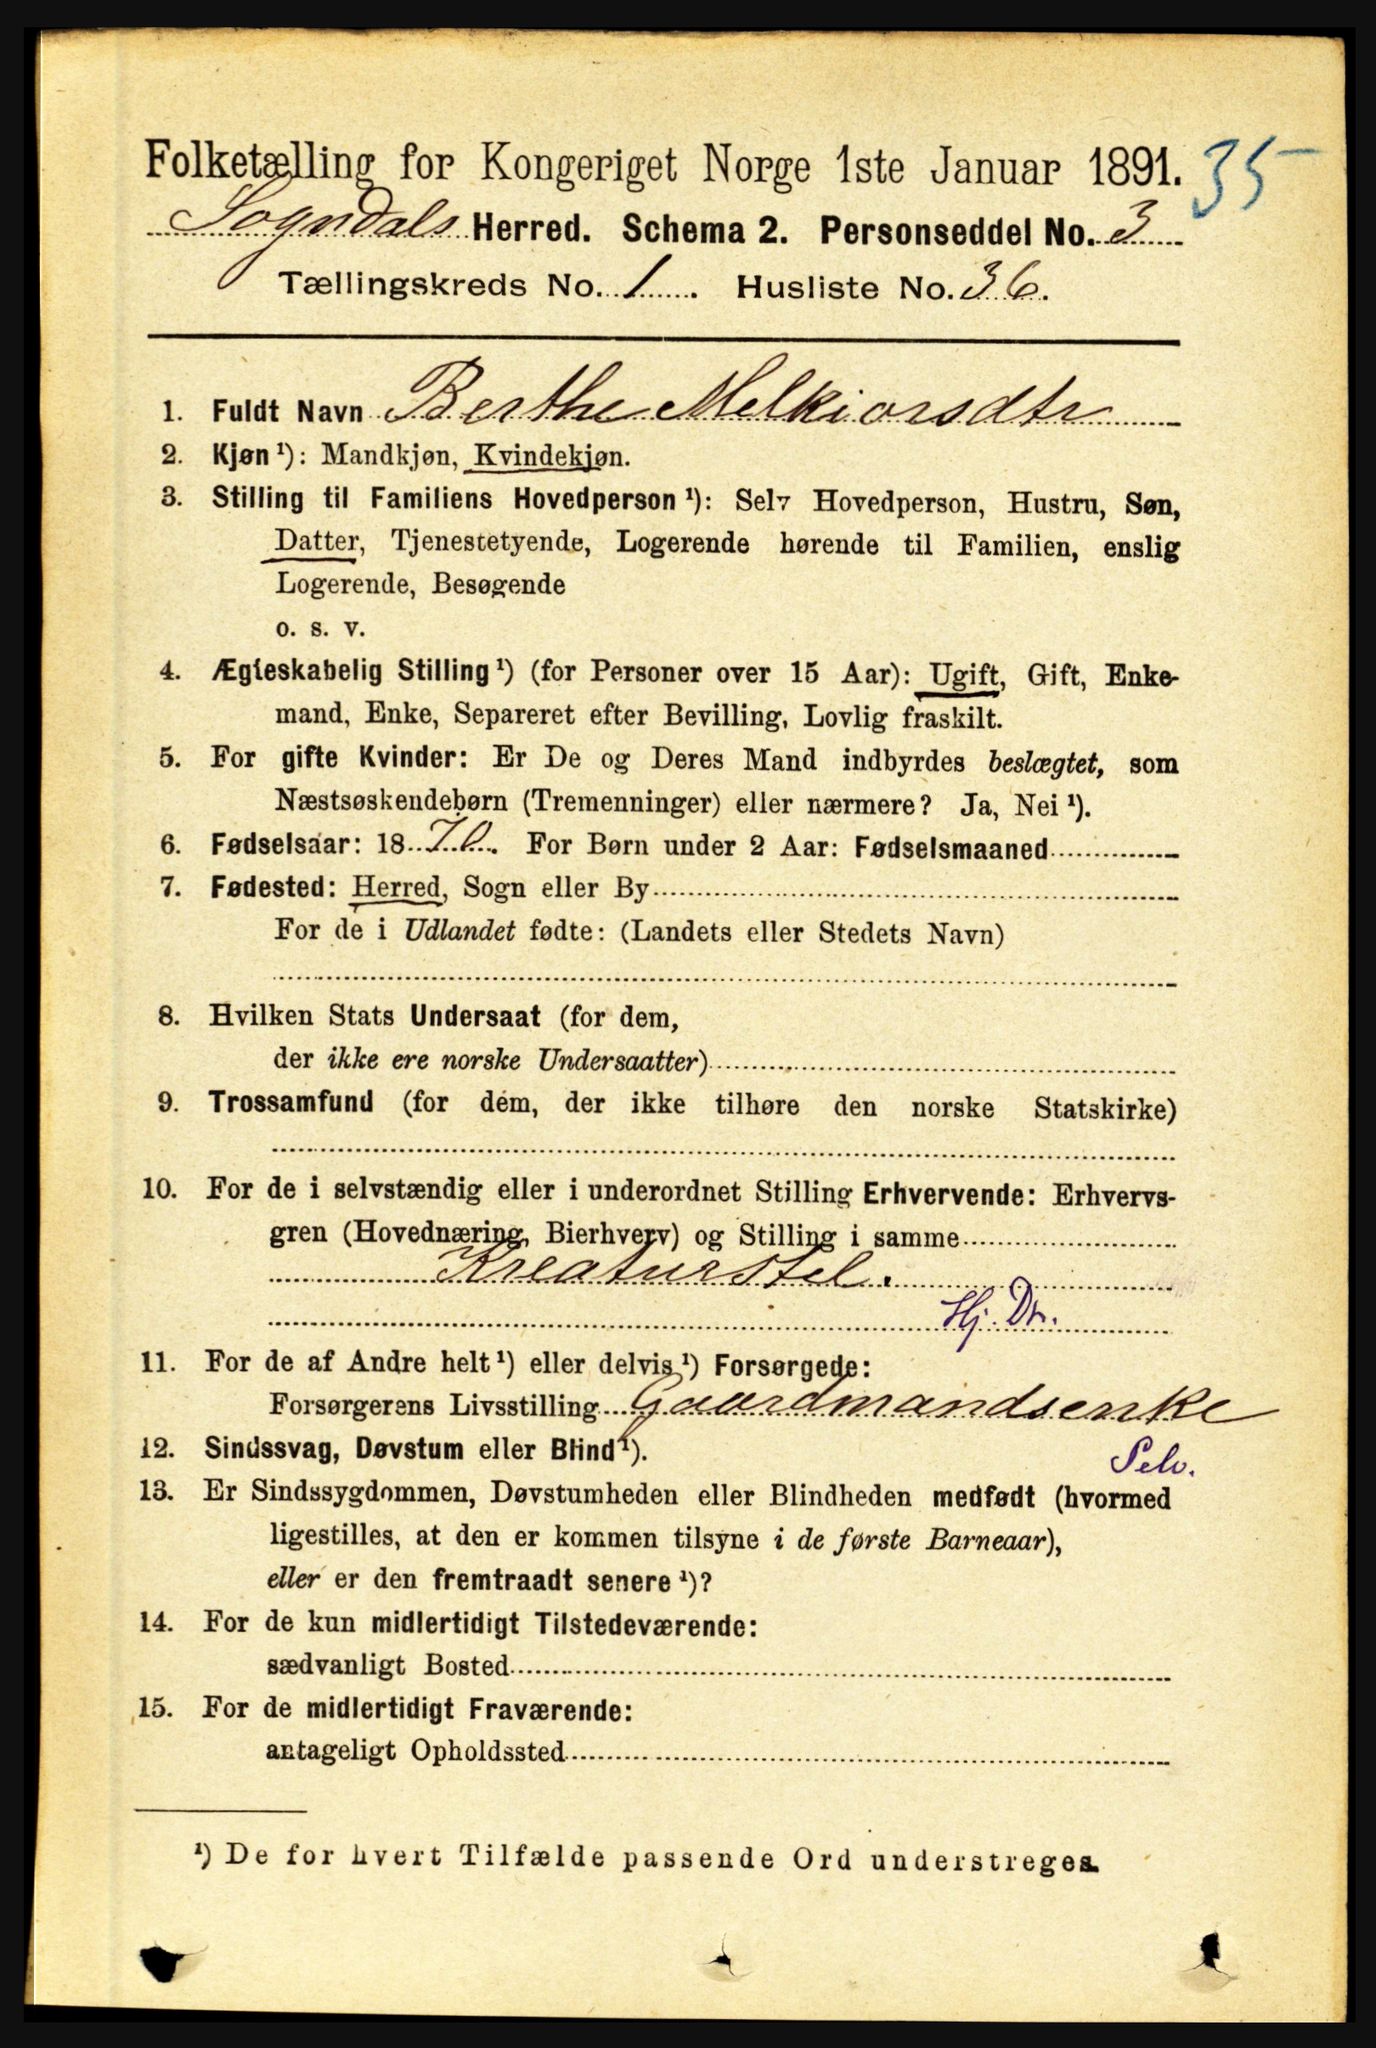 Folketælling for Kongeriget Norge 1ste Januar 1891. 35
Sogndals Herred. Schema 2. Personseddel No. 3
Tællingskreds No. 1. Husliste No. 36.
1. Fuldt Navn Berthe Melkiorsdtr
2. Kjøn ¹): Mandkjøn, Kvindekjøn.
3. Stilling til Familiens Hovedperson ¹): Selv Hovedperson, Hustru, Søn,
Datter, Tjenestetyende, Logerende hørende til Familien, enslig
Logerende, Besøgende
o. s. v.
4. Ægteskabelig Stilling ¹) (for Personer over 15 Aar): Ugift, Gift, Enke-
mand, Enke, Separeret efter Bevilling, Lovlig fraskilt.
5. For gifte Kvinder: Er De og Deres Mand indbyrdes beslægtet, som
Næstsøskendebørn (Tremenninger) eller nærmere? Ja, Nei ¹).
6. Fødselsaar: 1870. For Børn under 2 Aar: Fødselsmaaned
7. Fødested: Herred, Sogn eller By
For de i Udlandet fødte: (Landets eller Stedets Navn)
8. Hvilken Stats Undersaat (for dem,
der ikke ere norske Undersaatter)
9. Trossamfund (for dem, der ikke tilhøre den norske Statskirke)
10. For de i selvstændig eller i underordnet Stilling Erhvervende: Erhvervs-
gren (Hovednæring, Bierhverv) og Stilling i samme
Kreaturstel.
Hj. Dtr.
11. For de af Andre helt ¹) eller delvis ¹) Forsørgede:
Forsørgerens Livsstilling Gaardmandsenke
12. Sindssvag, Døvstum eller Blind ¹).
Selv.
13. Er Sindssygdommen, Døvstumheden eller Blindheden medfødt (hvormed
ligestilles, at den er kommen tilsyne i de første Barneaar),
eller er den fremtraadt senere ¹)?
14. For de kun midlertidigt Tilstedeværende:
sædvanligt Bosted
15. For de midlertidigt Fraværende:
antageligt Opholdssted
¹) De for hvert Tilfælde passende Ord understreges.